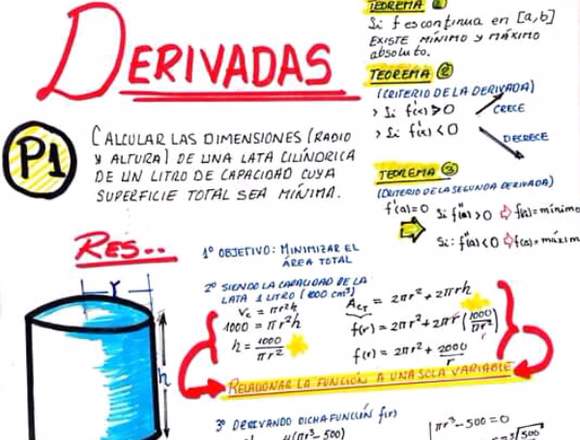 DERIVADAS
P1
CALCULAR LAS DIMENSIONES (RADIO
Y ALTURA) DE UNA LATA CILÍNDRICA
DE UN LITRO DE CAPACIDAD CUYA
SUPERFICIE TOTAL SEA MÍNIMA.
TEOREMA ①
Si f es continua en [a,b]
EXISTE MÍNIMO y MÁXIMO
absoluto.
TEOREMA ②
(CRITERIO DE LA DERIVADA)
> Si f'(x) > 0 CRECE
> Si f'(x) < 0 DECRECE
TEOREMA ③
(CRITERIO DE LA SEGUNDA DERIVADA)
f'(a)=0 Si f''(a) > 0 ⇨ f(a)=mínimo
Si: f''(a) < 0 ⇨ f(a)=máxim
RES..
r
h
1º OBJETIVO: MINIMIZAR EL
ÁREA TOTAL
2º SIENDO LA CAPACIDAD DE LA
LATA 1 LITRO (1000 cm³)
Vc = πr²h
1000 = πr²h
h = 1000/πr²
ACT = 2πr² + 2πrh
f(r) = 2πr² + 2πr(1000/πr²)
f(r) = 2πr² + 2000/r
RELACIONAR LA FUNCIÓN A UNA SOLA VARIABLE
3º DERIVANDO DICHA FUNCIÓN f(r)
4(πr³-500)
πr³-500=0